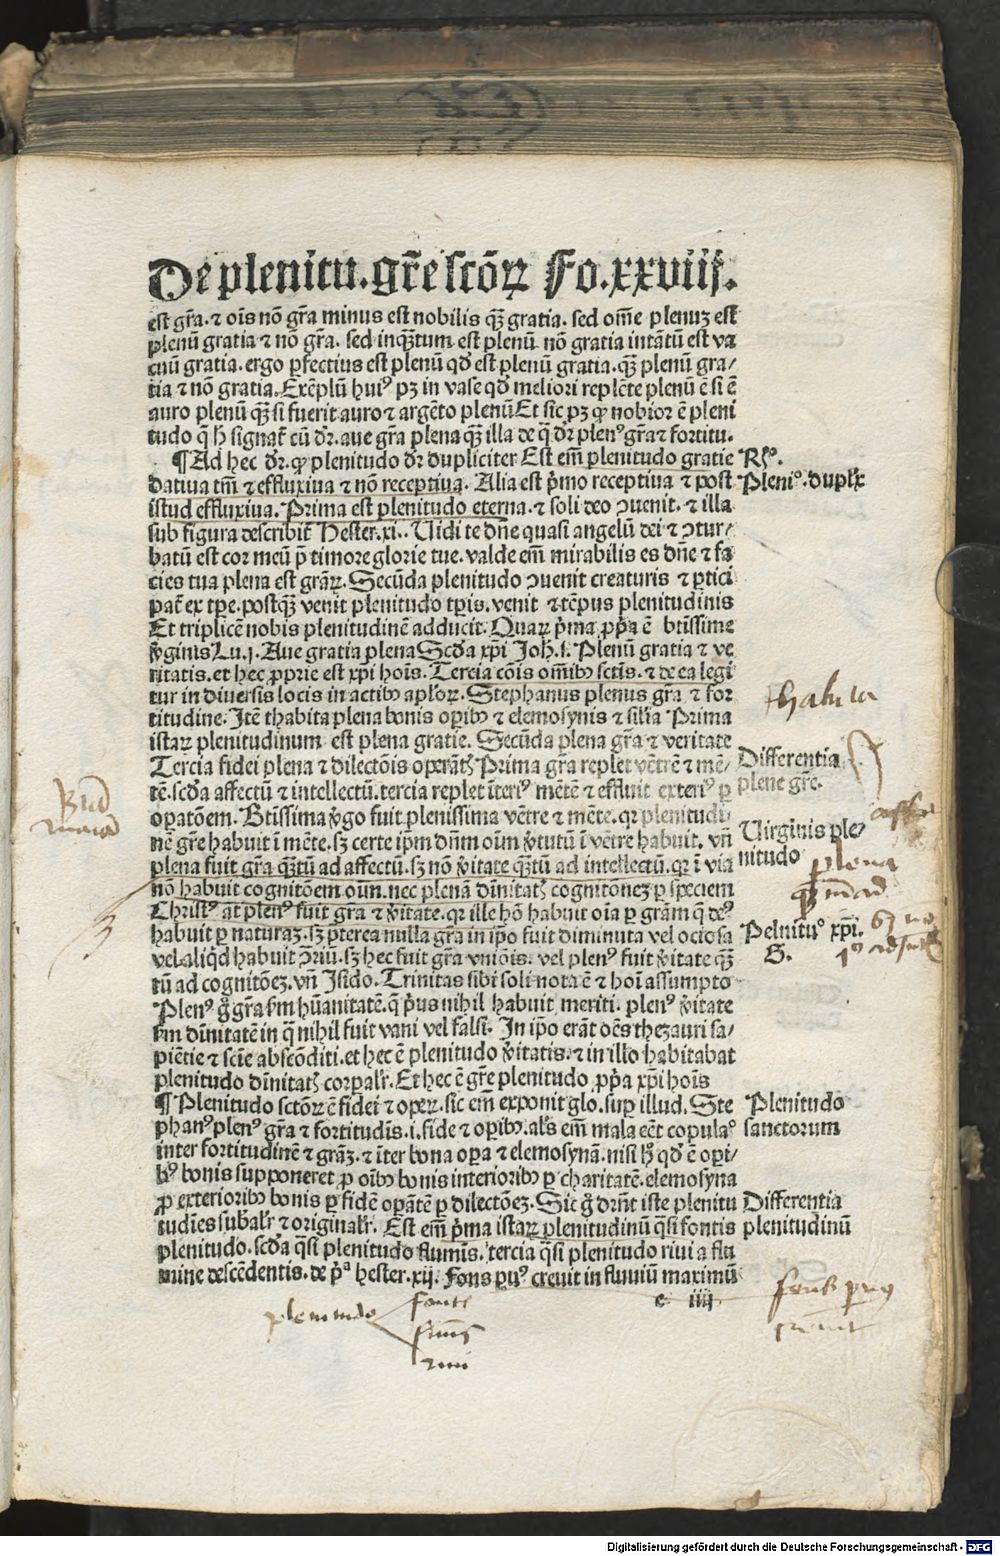 De plenitu. gr̄e scōꝝ Fo. xxviij.
est gr̄a. ⁊ oīs nō gr̄a minus est nobilis qꝫ gratia. sed om̄e plenuꝫ est
plenū gratia ⁊ nō gr̄a. sed inqꝫtum est plenū nō gratia intātū est va
cuū gratia. ergo ꝑfectius est plenū qd̓ est plenū gratia. qꝫ̄ plenū gra/
tia ⁊ nō gratia. Exēplū huiꝰ pꝫ in vase qd̓ meliori replēte plenū ē si ē
auro plenū qꝫ̄ si fuerit auro ⁊ argēto plenū Et sic pꝫ ꝙ nobior ē pleni
tudo q̄ h̓ signat̄ cū dr̄. aue gr̄a plena qꝫ̄ illa de q̄ dr̄ plenꝰ gr̄a ⁊ fortitu.
¶ Ad hec dr̄. ꝙ plenitudo dr̄ dupliciter Est em̄ plenitudo gratie
datiua tm̄ ⁊ effluxiua ⁊ nō receptiua. Alia est p̄mo receptiua ⁊ post
istud effluxiua. Prima est plenitudo eterna. ⁊ soli deo ↄuenit. ⁊ illa
sub figura describit̄ Hester. xi.. Uidi te dn̄e quasi angelū dei ⁊ ↄtur/
batū est cor meū p̄ timore glorie tue. valde em̄ mirabilis es dn̄e ⁊ fa
cies tua plena est grāꝝ. Secūda plenitudo ↄuenit creaturis ⁊ ꝑtici
pat̄ ex tꝑe. postqꝫ̄ venit plenitudo tꝑis. venit ⁊ tēpus plenitudinis
Et triplicē nobis plenitudinē adducit. Quaꝝ p̄ma ꝓpͥa ē btīssime
v̓ginis Lu. j. Aue gratia plena Scd̓a xp̄i Joh̓. 1. Plenū gratia ⁊ ve
ritatis. et hec ꝓprie est xp̄i hoīs. Tercia cōis om̄ibꝰ sctīs. ⁊ de ea legi
tur in diuersis locis in actibꝰ apl̓oꝝ. Stephanus plenus gr̄a ⁊ for
titudine. Jtē thabita plena bonis oꝑibꝰ ⁊ elemosynis ⁊ sil̓ia Prima
istaꝝ plenitudinum est plena gratie. Secūda plena gr̄a ⁊ veritate
Tercia fidei plena ⁊ dilectōis oꝑantꝭ Prima gr̄a replet vētrē ⁊ mē/
tē. scd̓a affectū ⁊ intellectū. tercia replet īteriꝰ mētē ⁊ effluit exteriꝰ ꝑ
oꝑatōem. Btīssima v̓go fuit plenissima vētre ⁊ mēte. qꝛ plenitudi
nē gr̄e habuit ī mēte. sꝫ certe ip̄m dn̄m oīm v̓tutū ī vētre habuit. vn̄
plena fuit gr̄a qꝫ̄tū ad affectū. sꝫ nō v̓itate qꝫ̄tū ad intellectū. qꝛ ī via
nō habuit cognitōem oīm. nec plenā dīnitatꝭ cognitōneꝫ ꝑ speciem
Christꝰ at̄ plenꝰ fuit gr̄a ⁊ v̓itate. qꝛ ille hō habuit oīa ꝑ grām q̄ deꝰ
habuit ꝑ naturaꝫ. sꝫ p̄terea nulla gr̄a in ip̄o fuit diminuta vel ociosa
vel aliqd̓ habuit ↄriū. sꝫ hec fuit gr̄a vniōis. vel plenꝰ fuit v̓itate qꝫ̄
tū ad cognitōeꝫ. vn̄ Jsido. Trinitas sibi soli nota ē ⁊ hoī assumpto
Plenꝰ g̓ gr̄a ẜm hūanitatē. q̄ pͥus nihil habuit meriti. plenꝰ v̓itate
ẜm dīnitatē in q̄ nihil fuit vani vel falsi. Jn ip̄o erāt oēs thezauri sa/
piētie ⁊ sciē abscōditi. et hec ē plenitudo v̓itatis. ⁊ in illo habitabat
plenitudo dīnitatꝭ corꝑal̓r. Et hec ē gr̄e plenitudo ꝓpͥa xp̄i hoīs
¶ Plenitudo sctōꝝ ē fidei ⁊ oꝑeꝝ. sic em̄ exponit glo. suꝑ illud. Ste
phanꝰ plenꝰ gr̄a ⁊ fortitudīs. i. fide ⁊ oꝑibꝰ. al̓s em̄ mala eēt copulaꝰ
inter fortitudinē ⁊ grāꝫ. ⁊ īter bona oꝑa ⁊ elemosynā. nisi h̓ qd̓ ē oꝑi/
bꝰ bonis supponeret ꝓ oībꝰ bonis interioribꝰ ꝑ charitatē. elemosyna
ꝓ exterioribꝰ bonis ꝑ fidē oꝑātē ꝑ dilectōeꝫ. Sic g̓ drn̄t iste plenitu
tudīes sub̓al̓r ⁊ original̓r. Est em̄ p̄ma istaꝝ plenitudinū qsi fontis
plenitudo. scd̓a qͣsi plenitudo flumīs. tercia qͣsi plenitudo riui a flu
mine descēdentis. de pͥᵃ hester. xij. Fons ꝑuꝰ creuit in fluuiū maximū
e iiij
Rn̄ꝰ.
Pleniꝰ. dupl̓x
thabita
Differentia
plene gr̄e.
Uirginis ple/
nitudo
plena
Pelnituꝰ xp̄i.
S.
Plenitudo
sanctorum
Differentia
plenitudinū
fons ꝑuꝰ
creuit
plenitudo
fontis
flumīs
riui
Digitalisierung gefördert durch die Deutsche Forschungsgemeinschaft - DFG